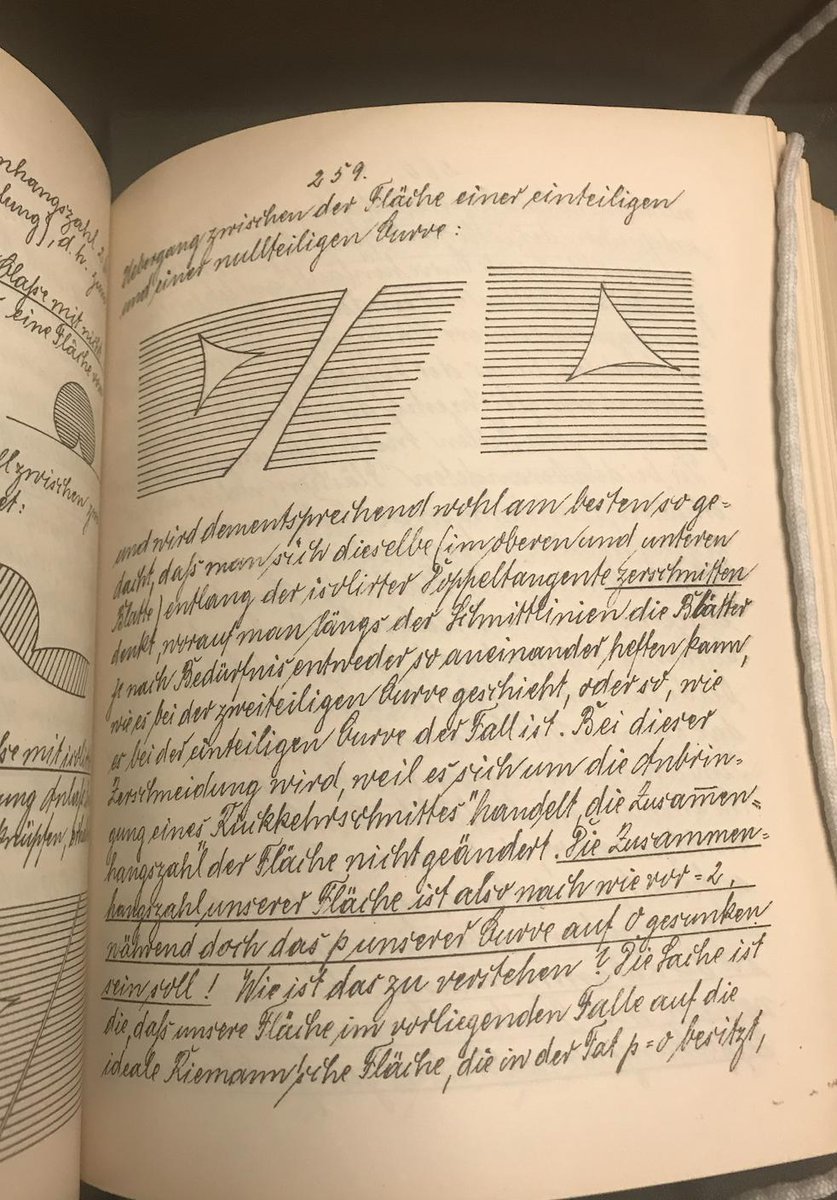 nhangszahl 2
dung), d. h.
Klaße mit nicht
eine Fläche
zwischen
et:
se mit
knüpfen,
259.
Uebergang zwischen der Fläche einer einteiligen
und einer nullteiligen Curve:
und wird dementsprechend wohl am besten so ge-
dacht, daß man sich dieselbe (im oberen und unteren
Blatte) entlang der isolirter Doppeltangente zerschnitten
denkt, worauf man längs der Schnittlinien die Blätter
je nach Bedürfnis entweder so aneinander heften kann,
wie es bei der zweiteiligen Curve geschieht, oder so, wie
er bei der einteiligen Curve der Fall ist. Bei dieser
Zerschneidung wird, weil es sich um die Anbrin-
gung eines „Rückkehrschnittes" handelt, die Zusam̅en-
hangszahl der Fläche nicht geändert. Die Zusammen-
hangszahl unserer Fläche ist also nach wie vor = 2,
während doch das p unserer Curve auf 0 gesunken
sein soll! Wie ist das zu verstehen? Die Sache ist
die, daß unsere Fläche im vorliegenden Falle auf die
ideale Riemann'sche Fläche, die in der Tat p = 0 besitzt,